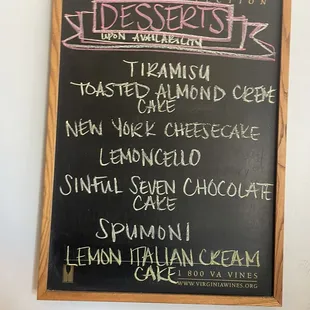 DESSERTS
UPON AVAILABILITY
TIRAMISU
TOASTED ALMOND CREME
CAKE
NEW YORK CHEESECAKE
LEMONCELLO
SINFUL SEVEN CHOCOLATE
CAKE
SPUMONI
LEMON ITALIAN CREAM
CAKE
1 800 VA VINES
WWW.VIRGINIAWINES.ORG